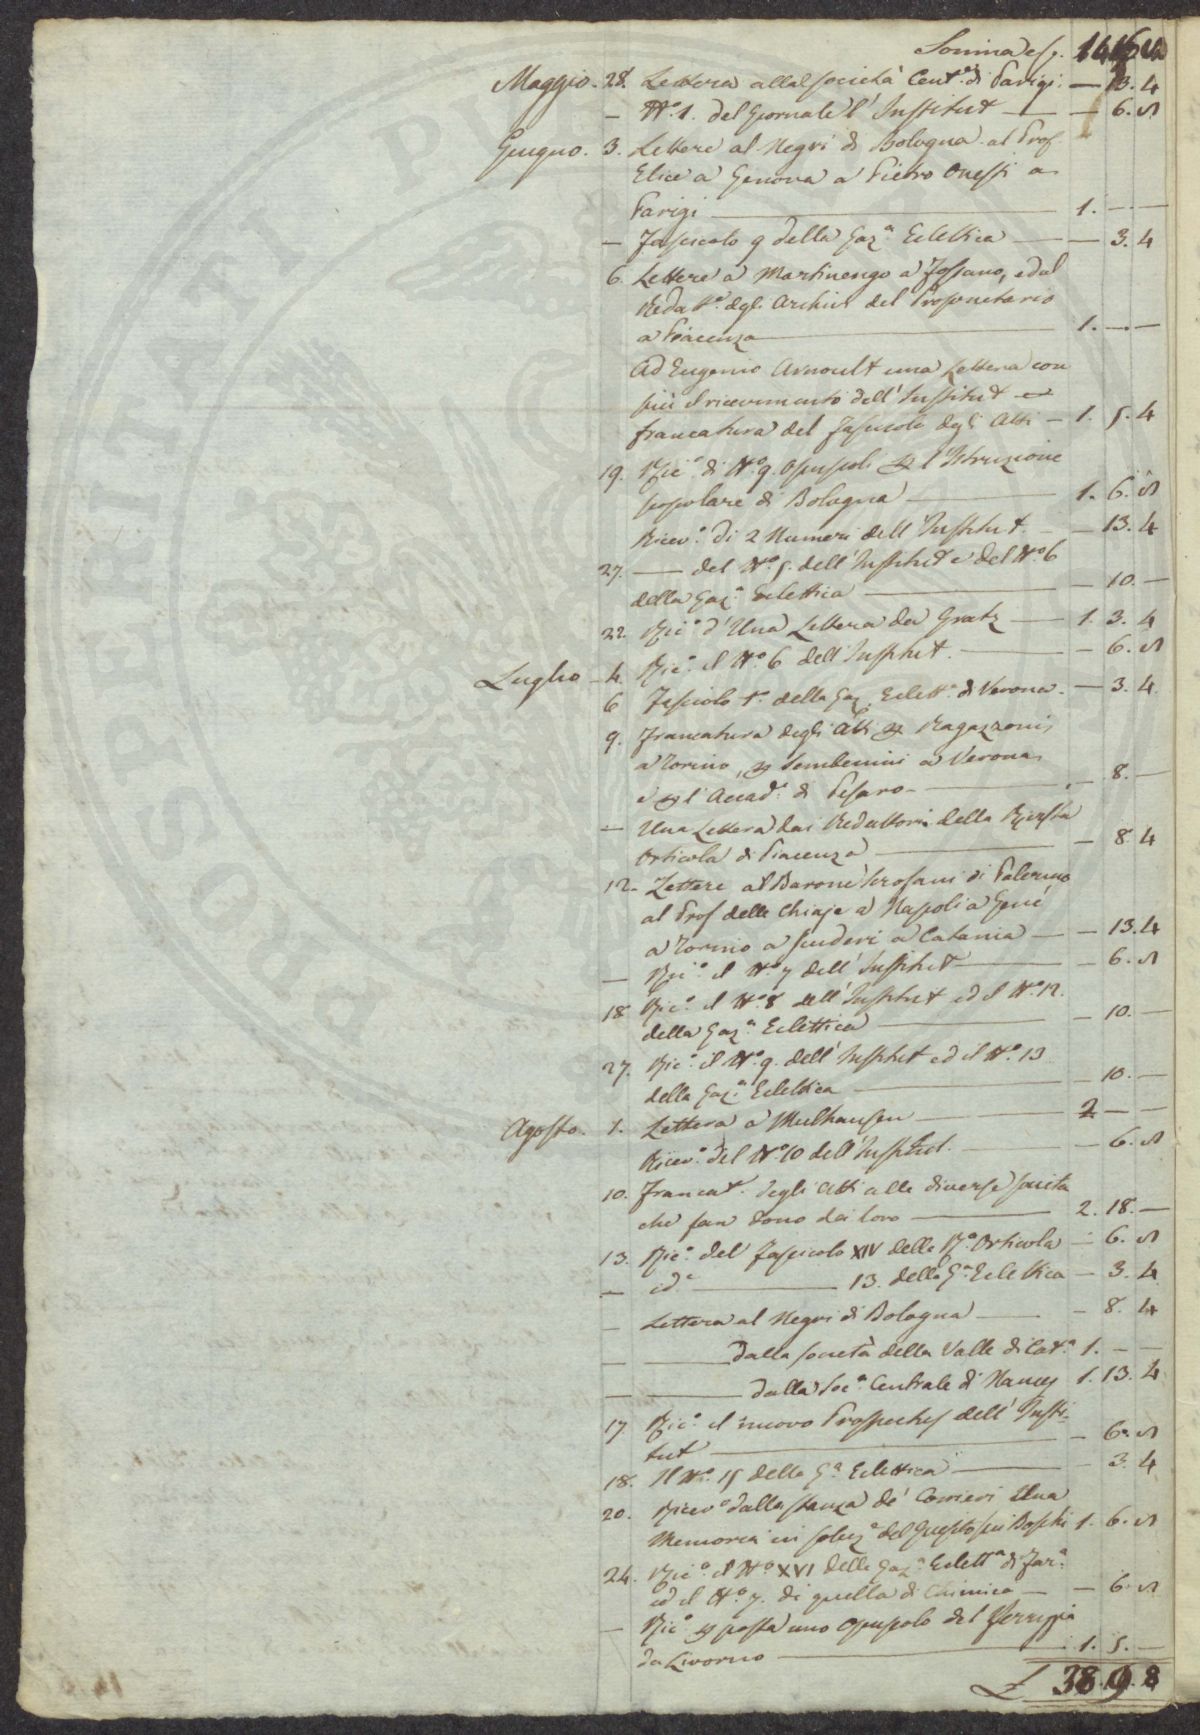 Somma es.
Maggio. 28. Lettera alla Società Cent.e di Parigi — — 13. 4
— N.o 1. del Giornale l'Institut — — 6. 8
Giugno. 3. Lettere al Negri di Bologna al Prof
Elice a Genova a Pietro Onesti a
Parigi — 1. — —
— Fascicolo 9 della Gaz.a Eclettica — — 3. 4
6. Lettere a Martinengo a Fossano, ed al
Redatt.e degli Archivi del Proprietario
a Piacenza — 1. — —
Ad Eugenio Arnoult una Lettera con
più il ricevimento dell'Institut e
francatura del fascicolo degli Atti — 1. 5. 4
19. Ric.o di N.o 9. Opuscoli l'Istruzione
popolare di Bologna — 1. 6. 8
Ricev.o di 2 Numeri dell'Institut. — 13. 4
27. — del N.o 5. dell'Institut e del N.o 6
della Gaz.a Eclettica — — 10. —
22. Ric.o d'Una Lettera da Gratz — 1. 3. 4
Luglio — 4. Ric.o il N.o 6 dell'Institut. — — 6. 8
6 Fascicolo della Gaz. Eclett.a di Verona. — 3. 4
9. Francatura degli Atti Ragazzoni
a Torino, a Verona,
e l'Accad.a di Pesaro — — 8. —
— Una Lettera dai Redattori della Rivista
Orticola di Piacenza — — 8 4
12. Lettere al Barone di Palermo
al Prof delle Chiaje a Napoli a Gené
a Torino a Scuderi a Catania — — 13. 4
— Ric.o il N.o 7 dell'Institut — — 6. 8
18 Ric.o il N.o 8 dell'Institut ed il N.o 12.
della Gaz.a Eclettica — — 10. —
27. Ric.o il N.o 9. dell'Institut ed il N.o 13
della Gaz.a Eclettica — — 10. —
Agosto. 1. Lettera a Mulhausen — 2 — —
Ricev.o del N.o 10 dell'Institut. — — 6. 8
10. Francat.a degli Atti alle diverse società
che fan dono dei loro — 2. 18. —
13. Ric.o del Fascicolo XIV della R.a Orticola — 6. 8
— id.e — 13. della G.a Eclettica — 3. 4
— Lettera al Negri di Bologna — — 8. 4
— — dalla società della Valle di 1. — —
— — dalla Soc.a Centrale di Nancy 1. 13. 4
17 Ric.o il nuovo Prospectus dell'Insti-
tut — — 6. 8
18. Il N.o 15 della G.a Eclettica — — 3. 4
20. Ricev.o dalla stanza de' Corrieri Una
Memoria in del Boschi 1. 6. 8
24. Ric.o il N.o XVI della Gaz.a Eclett.a di Far.a
ed il N.o 7. di quella di Chimica — — 6. 8
— Ric.o posta uno opuscolo del
da Livorno — 1. 5. —
£ 38. 9. 8